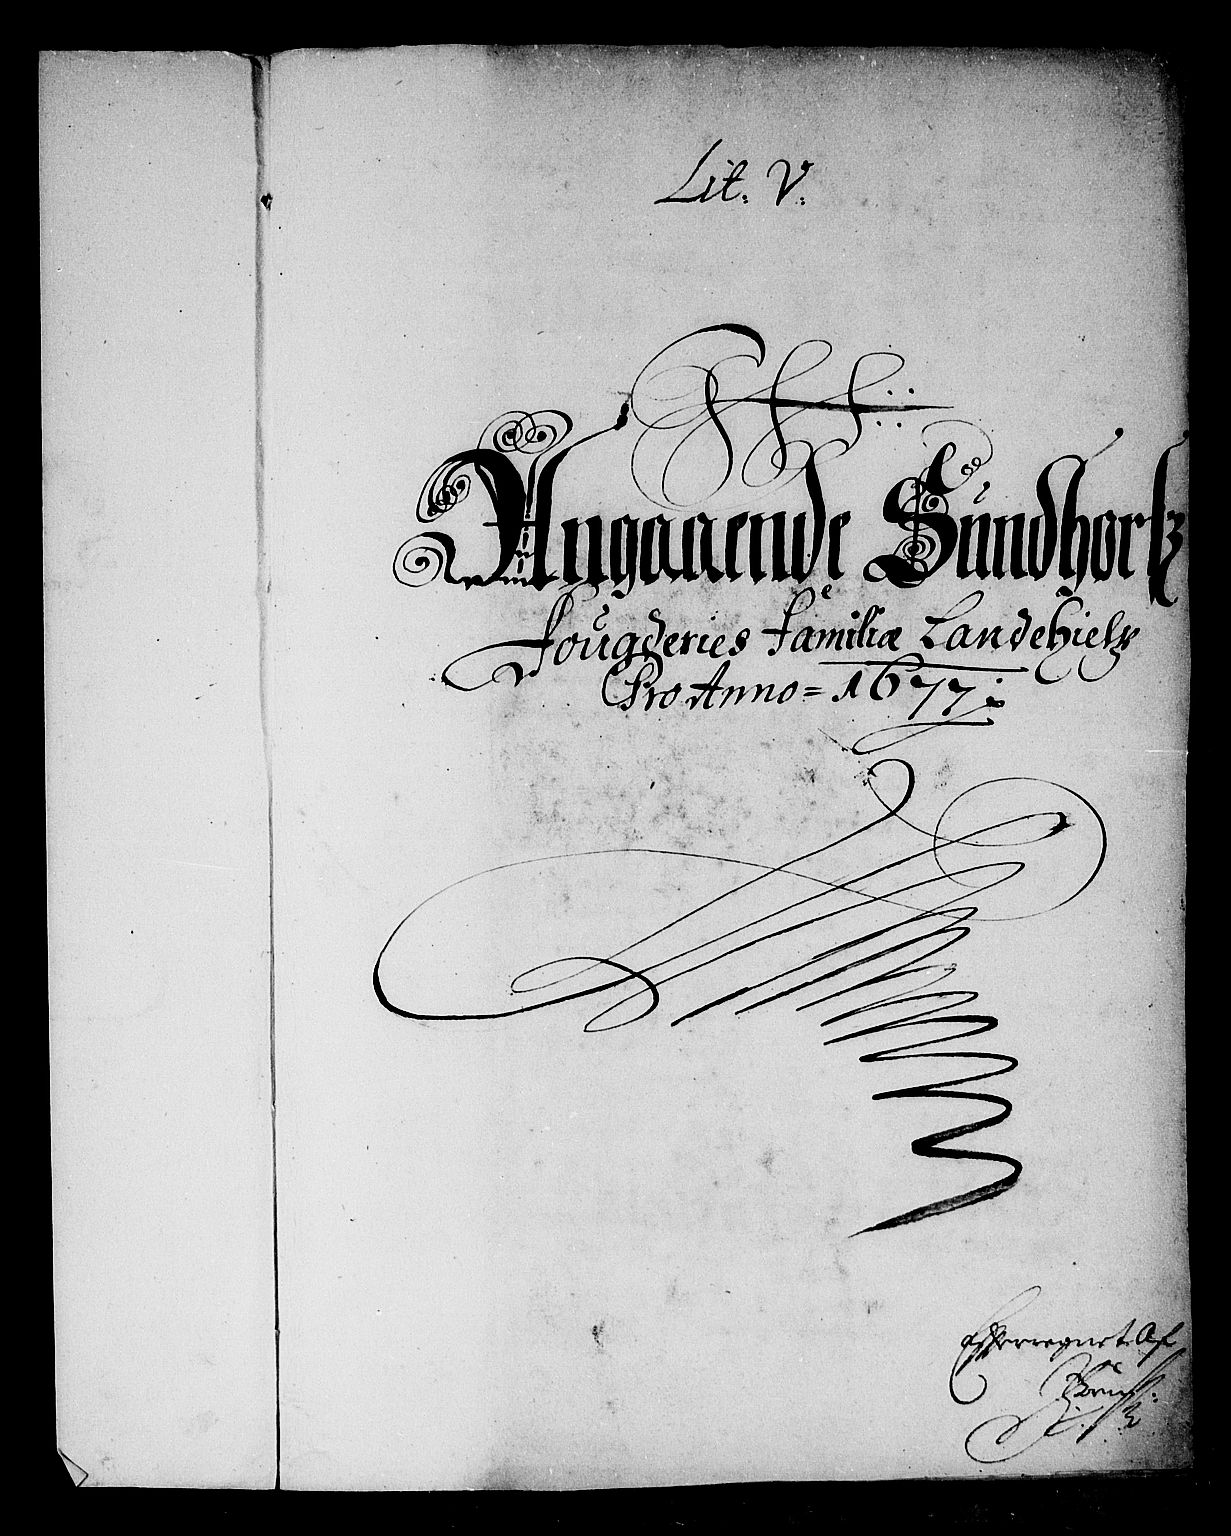 Lit. V.
Angaaende Sundhortz
Fougderies Familiæ Landehielp
Pro Anno = 1677
Efterregnet Af